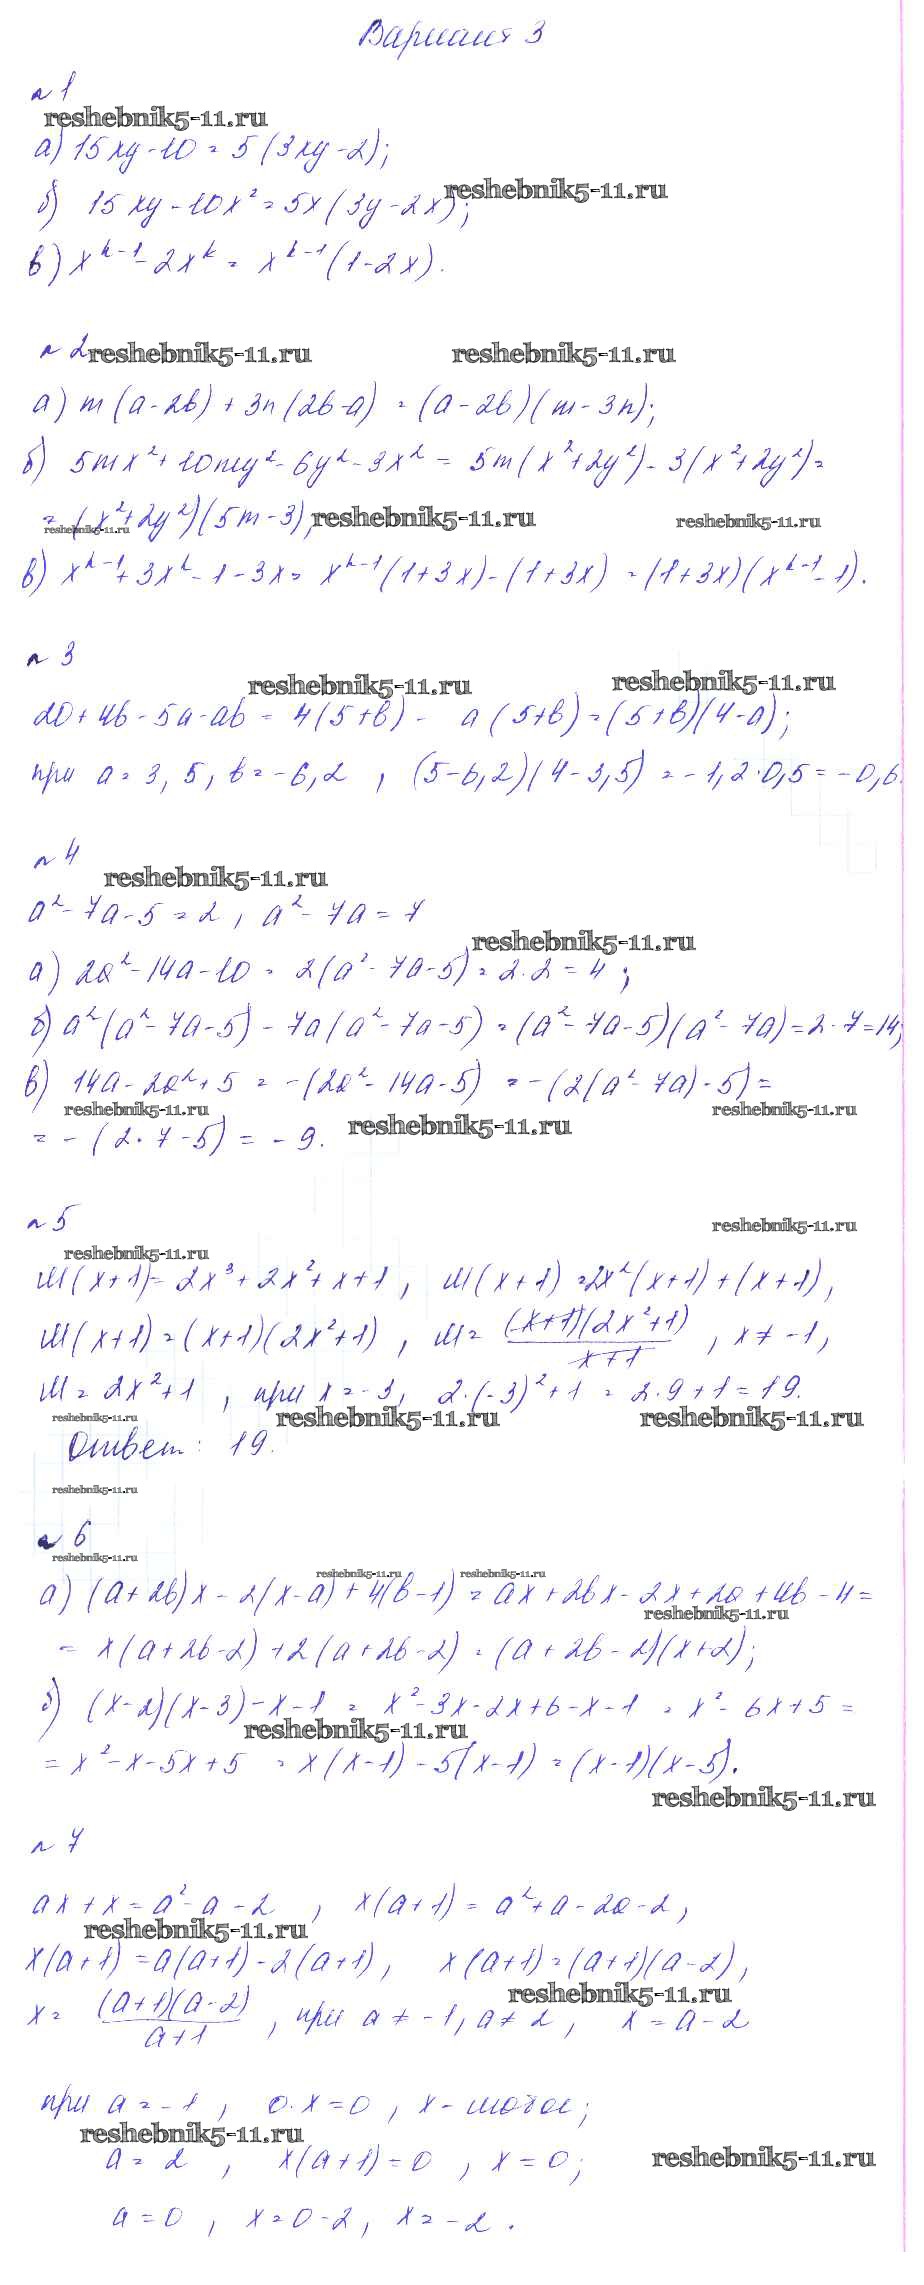 Вариант 3
№ 1
reshebnik5-11.ru
а) 15xy - 10 = 5(3xy - 2);
reshebnik5-11.ru
б) 15xy - 10x² = 5x(3y - 2x);
в) x^(k-1) - 2x^k = x^(k-1)(1 - 2x).
№ 2
reshebnik5-11.ru reshebnik5-11.ru
а) m(a - 2b) + 3n(2b - a) = (a - 2b)(m - 3n);
б) 5mx² + 10my² - 6y² - 3x² = 5m(x² + 2y²) - 3(x² + 2y²) =
= (x² + 2y²)(5m - 3);
reshebnik5-11.ru reshebnik5-11.ru reshebnik5-11.ru
в) x^(k-1) + 3x^k - 1 - 3x = x^(k-1)(1 + 3x) - (1 + 3x) = (1 + 3x)(x^(k-1) - 1).
№ 3
reshebnik5-11.ru reshebnik5-11.ru
20 + 4b - 5a - ab = 4(5 + b) - a(5 + b) = (5 + b)(4 - a);
при a = 3,5, b = -6,2, (5 - 6,2)(4 - 3,5) = -1,2·0,5 = -0,6.
№ 4
reshebnik5-11.ru
a² - 7a - 5 = 2, a² - 7a = 7
reshebnik5-11.ru
а) 2a² - 14a - 10 = 2(a² - 7a - 5) = 2·2 = 4;
б) a²(a² - 7a - 5) - 7a(a² - 7a - 5) = (a² - 7a - 5)(a² - 7a) = 2·7 = 14;
в) 14a - 2a² + 5 = -(2a² - 14a - 5) = -(2(a² - 7a) - 5) =
reshebnik5-11.ru reshebnik5-11.ru reshebnik5-11.ru
= -(2·7 - 5) = -9.
№ 5
reshebnik5-11.ru
reshebnik5-11.ru
M(x + 1) = 2x³ + 2x² + x + 1, M(x + 1) = 2x²(x + 1) + (x + 1),
M(x + 1) = (x + 1)(2x² + 1), M = (x + 1)(2x² + 1) / x + 1, x ≠ -1,
M = 2x² + 1, при x = -3, 2·(-3)² + 1 = 2·9 + 1 = 19.
reshebnik5-11.ru reshebnik5-11.ru reshebnik5-11.ru
Ответ: 19.
reshebnik5-11.ru
№ 6
reshebnik5-11.ru
reshebnik5-11.ru reshebnik5-11.ru
а) (a + 2b)x - 2(x - a) + 4(b - 1) = ax + 2bx - 2x + 2a + 4b - 4 =
reshebnik5-11.ru
= x(a + 2b - 2) + 2(a + 2b - 2) = (a + 2b - 2)(x + 2);
б) (x - 2)(x - 3) - x - 1 = x² - 3x - 2x + 6 - x - 1 = x² - 6x + 5 =
reshebnik5-11.ru
= x² - x - 5x + 5 = x(x - 1) - 5(x - 1) = (x - 1)(x - 5).
reshebnik5-11.ru
№ 7
ax + x = a² - a - 2, x(a + 1) = a² + a - 2a - 2,
reshebnik5-11.ru
x(a + 1) = a(a + 1) - 2(a + 1), x(a + 1) = (a + 1)(a - 2),
reshebnik5-11.ru
x = (a + 1)(a - 2) / a + 1, при a ≠ -1, a ≠ 2, x = a - 2
при a = -1, 0·x = 0, x - любое;
reshebnik5-11.ru
a = 2, x(a + 1) = 0, x = 0;
reshebnik5-11.ru
a = 0, x = 0 - 2, x = -2.